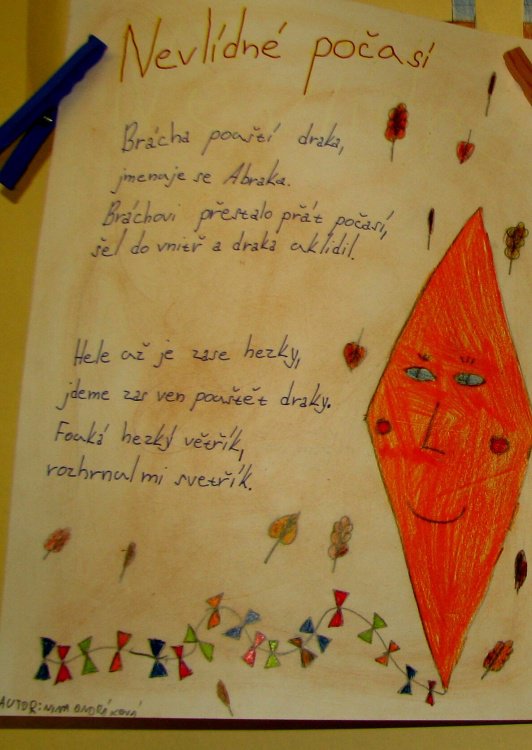 Nevlídné počasí
Brácha pouští draka,
jmenuje se Abraka.
Bráchovi přestalo přát počasí,
šel do vnitř a draka uklidil.
Hele už je zase hezky,
jdeme zas ven pouštět draky.
Fouká hezký větřík,
rozhrnul mi svetřík.
AUTOR: NINA ONDRÁKOVÁ